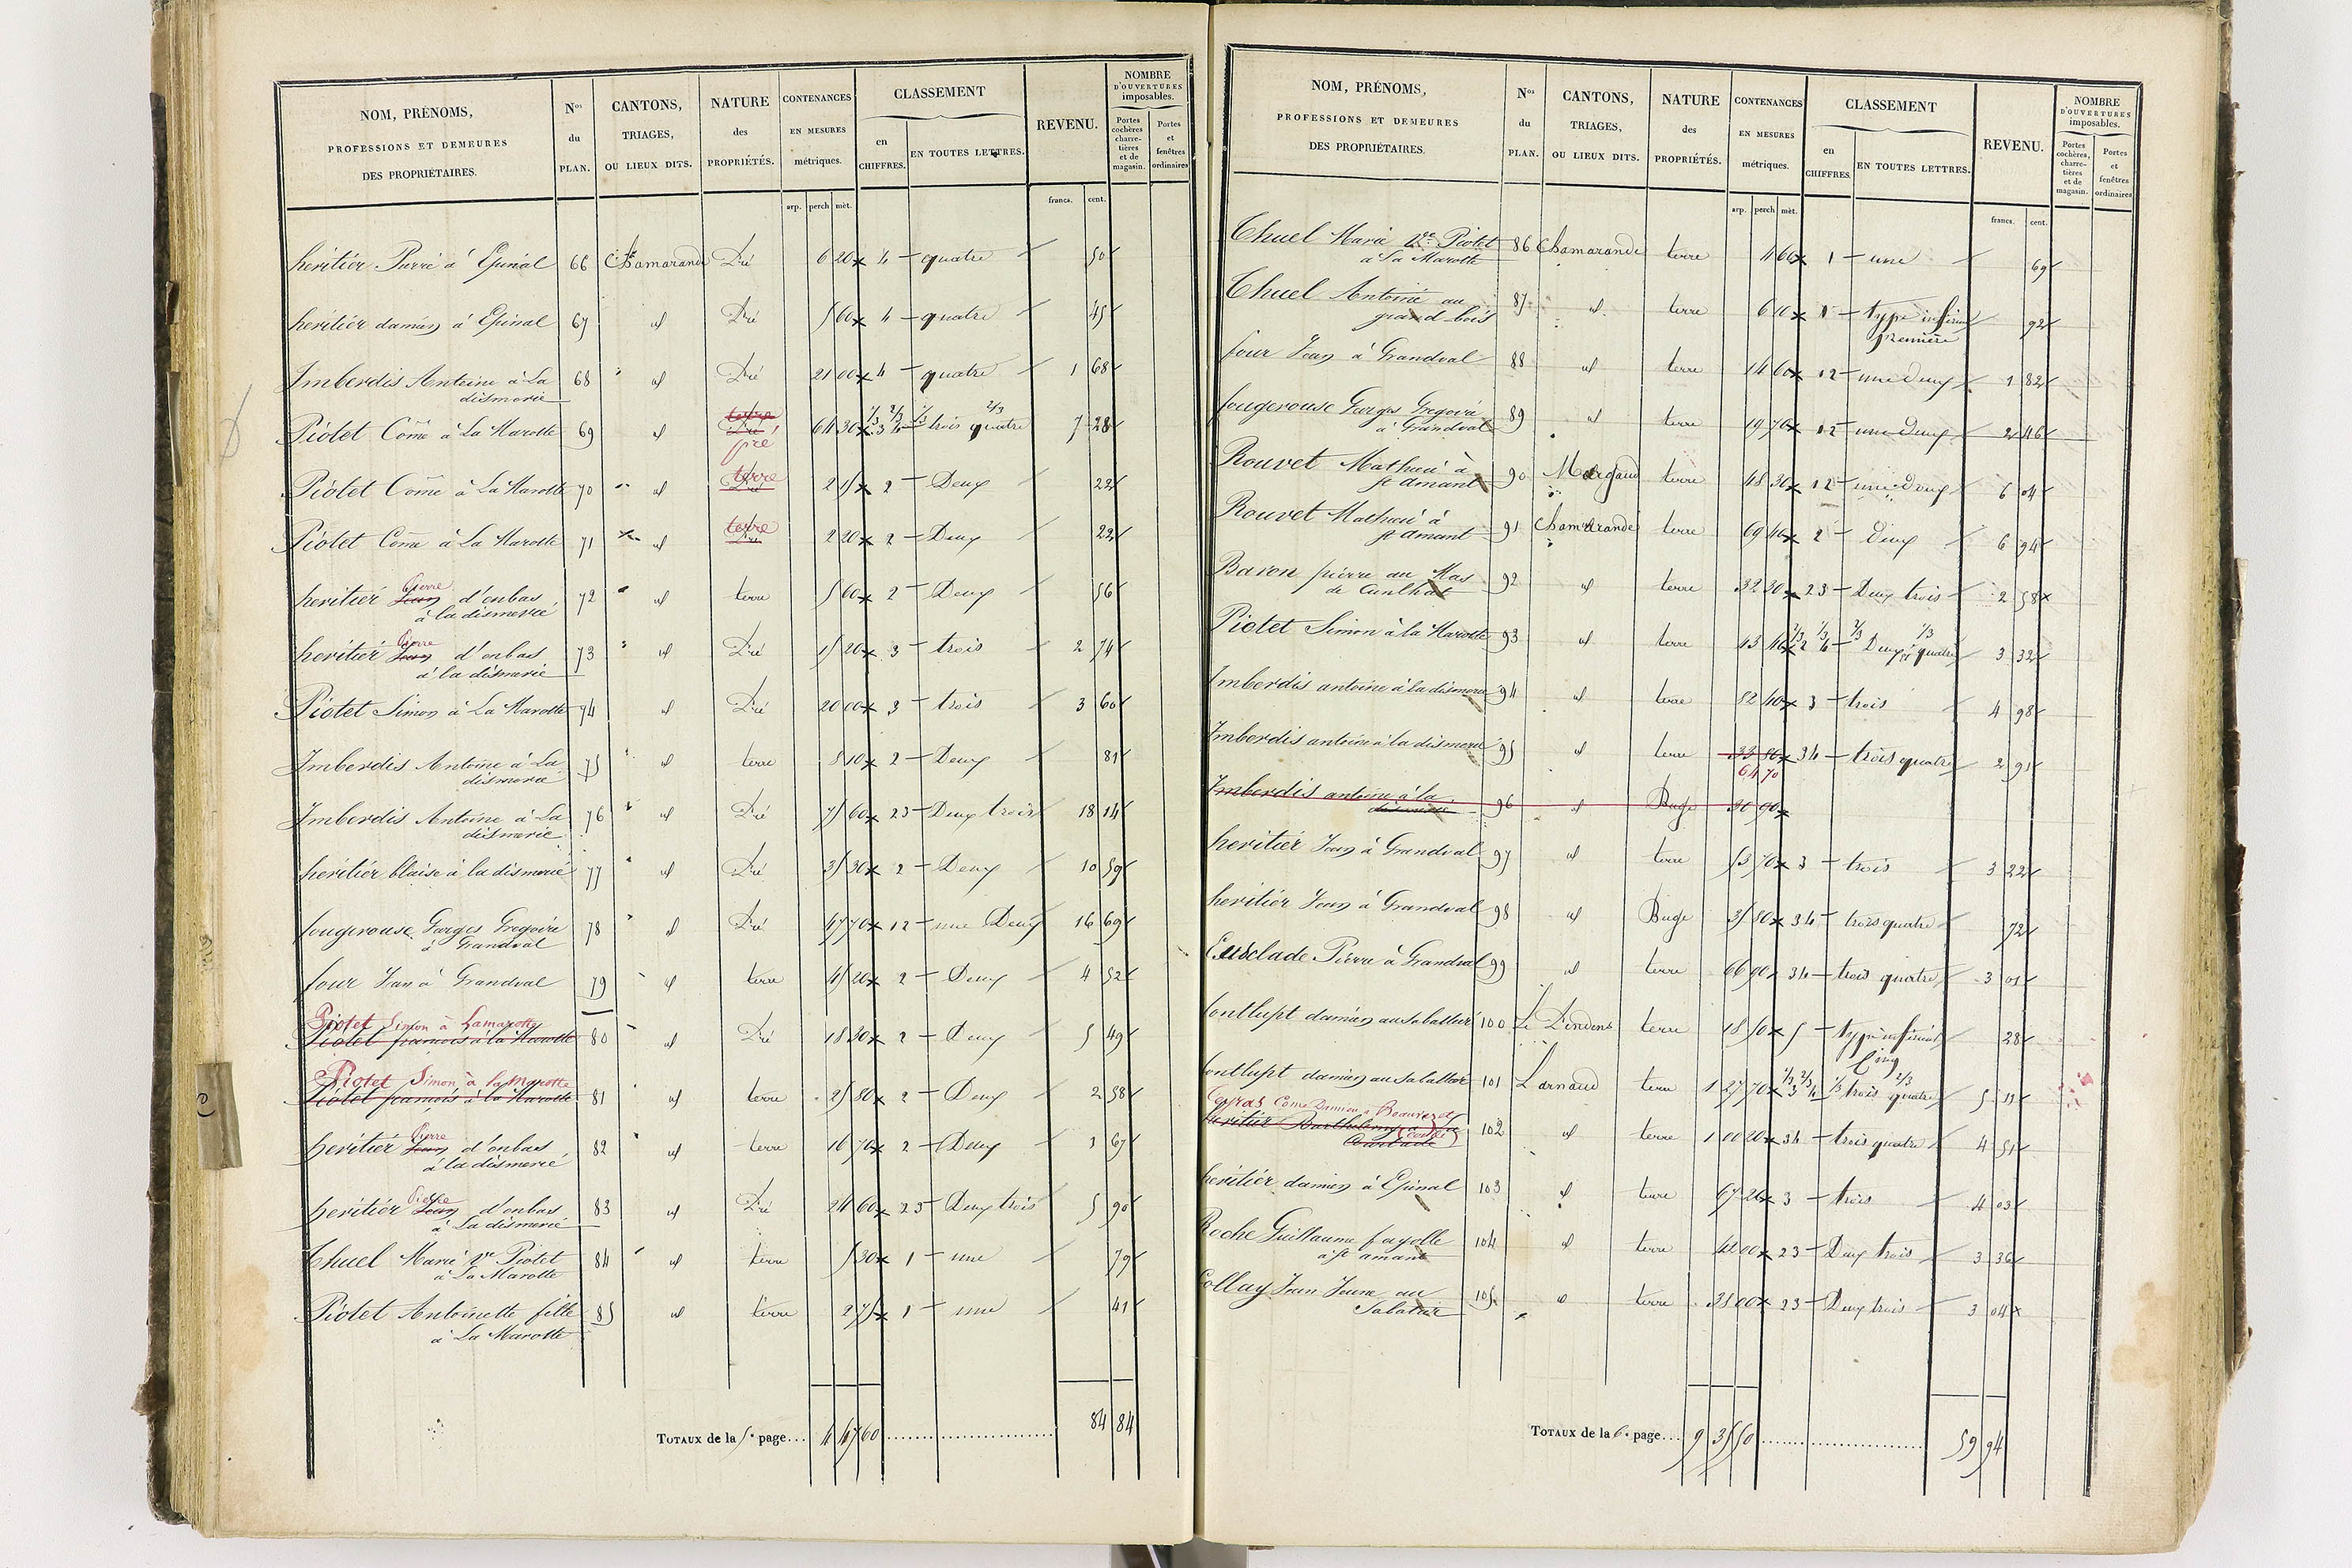 NOM, PRÉNOMS, PROFESSIONS ET DEMEURES DES PROPRIÉTAIRES. Nos du PLAN. CANTONS, TRIAGES, OU LIEUX DITS. NATURE des PROPRIÉTÉS. CONTENANCES EN MESURES métriques. CLASSEMENT en CHIFFRES. EN TOUTES LETTRES. REVENU. NOMBRE D'OUVERTURES imposables. Portes cochères charretières et de magasin. Portes et fenêtres ordinaires
arp. perch mèt. francs. cent.
heritiér Pierre à Epinal 66 Chamarande Pré 6 20 4 quatre 50
heritiér damien à Epinal 67 id Pré 5 60 4 quatre 45
Imberdis Antoine à La dismerie 68 id Pré 21 00 4 quatre 1 68
Piotet Côme à La Marotte 69 id terre Pré pré 64 30 1/3 2/3 3 4 1/3 trois 2/3 quatre 7 28
Piotet Côme à La Marotte 70 id terre Pré 2 15 2 Deux 22
Piotet Côme à La Marotte 71 id terre Pré 2 20 2 Deux 22
heritiér Jean Pierre d'enbas à la dismerie 72 id terre 5 60 2 Deux 56
heritiér Jean Pierre d'enbas à la dismerie 73 id Pré 15 20 3 trois 2 74
Piotet Simon à La Marotte 74 id Pré 20 00 3 trois 3 60
Imberdis Antoine à La dismerie 75 id terre 8 10 2 Deux 81
Imberdis Antoine à La dismerie 76 id Pré 75 60 23 Deux trois 18 14
heritiér blaise à la dismerie 77 id Pré 35 30 2 Deux 10 59
fougerouse Georges Gregoire à Grandval 78 id Pré 47 70 12 une Deux 16 69
four Jean à Grandval 79 id terre 45 20 2 Deux 4 52
Piotet Simon à Lamarotte
Piotet francois à la Marotte 80 id Pré 18 30 2 Deux 5 49
Piotet Simon à la Marotte
Piotet francois à la Marotte 81 id terre 25 80 2 Deux 2 58
heritiér Jean Pierre d'enbas à la dismerie 82 id terre 16 70 2 Deux 1 67
heritiér Jean Pierre d'enbas à La dismerie 83 id Pré 24 60 23 Deux trois 5 90
Chuel Marie ve Piotet à La Marotte 84 id terre 5 30 1 une 79
Piotet Antoinette fille à La Marotte 85 id terre 2 75 1 une 41
TOTAUX de la 5e page... 4 47 60 84 84
NOM, PRÉNOMS, PROFESSIONS ET DEMEURES DES PROPRIÉTAIRES. Nos du PLAN. CANTONS, TRIAGES, OU LIEUX DITS. NATURE des PROPRIÉTÉS. CONTENANCES EN MESURES métriques. CLASSEMENT en CHIFFRES EN TOUTES LETTRES. REVENU. NOMBRE D'OUVERTURES imposables. Portes cochères, charretières et de magasin. Portes et fenêtres ordinaires
arp. perch mèt. francs. cent.
Chuel Marie Vve Piotet à La Marotte 86 Chamarande terre 4 66 1 une 69
Chuel Antoine au grand bois 87 id terre 6 10 1 type inférieur première 92
four Jean à Grandval 88 id terre 14 60 12 une Deux 1 82
fougerouse Georges Gregoire à Grandval 89 id terre 19 70 12 une Deux 2 46
Rouvet Mathieu à st amant 90 Margaud terre 48 30 12 une Deux 6 04
Rouvet Mathieu à st amant 91 Chamarande terre 69 40 2 Deux 6 94
Baron pierre au Mas de Cunlhat 92 id terre 32 30 23 Deux trois 2 58
Piotet Simon à la Marotte 93 id terre 43 40 2/3 1/3 2 4 2/3 Deux 1/3 quatre 3 32
Imberdis antoine à la dismerie 94 id terre 82 40 3 trois 4 98
Imberdis antoine à la dismerie 95 id terre 33 80 64 70 34 trois quatre 2 91
Imberdis antoine à la dismerie 96 id Buge 30 90
heritiér Jean à Grandval 97 id terre 53 70 3 trois 3 22
heritiér Jean à Grandval 98 id Buge 35 80 34 trois quatre 72
Eusclade Pierre à Grandval 99 id terre 66 90 34 trois quatre 3 01
Contlupt damien au sabattier 100 terre 18 50 5 type inférieur Cinq 28
Contlupt damien au sabattier 101 Larnaud terre 1 27 70 1/3 2/3 3 4 1/3 trois 2/3 quatre 5
Côme Damien à
heritiér Barthelemy à la 102 id terre 1 00 20 34 trois quatre 4 51
heritiér damien à Epinal 103 id terre 67 26 3 trois 4 03
Roche Guillaume fayolle à st amant 104 id terre 42 00 23 Deux trois 3 36
Collay Jean Jeune au Sabatier 105 id terre 38 00 23 Deux trois 3 04
TOTAUX de la 6e page.... 9 35 50 59 94